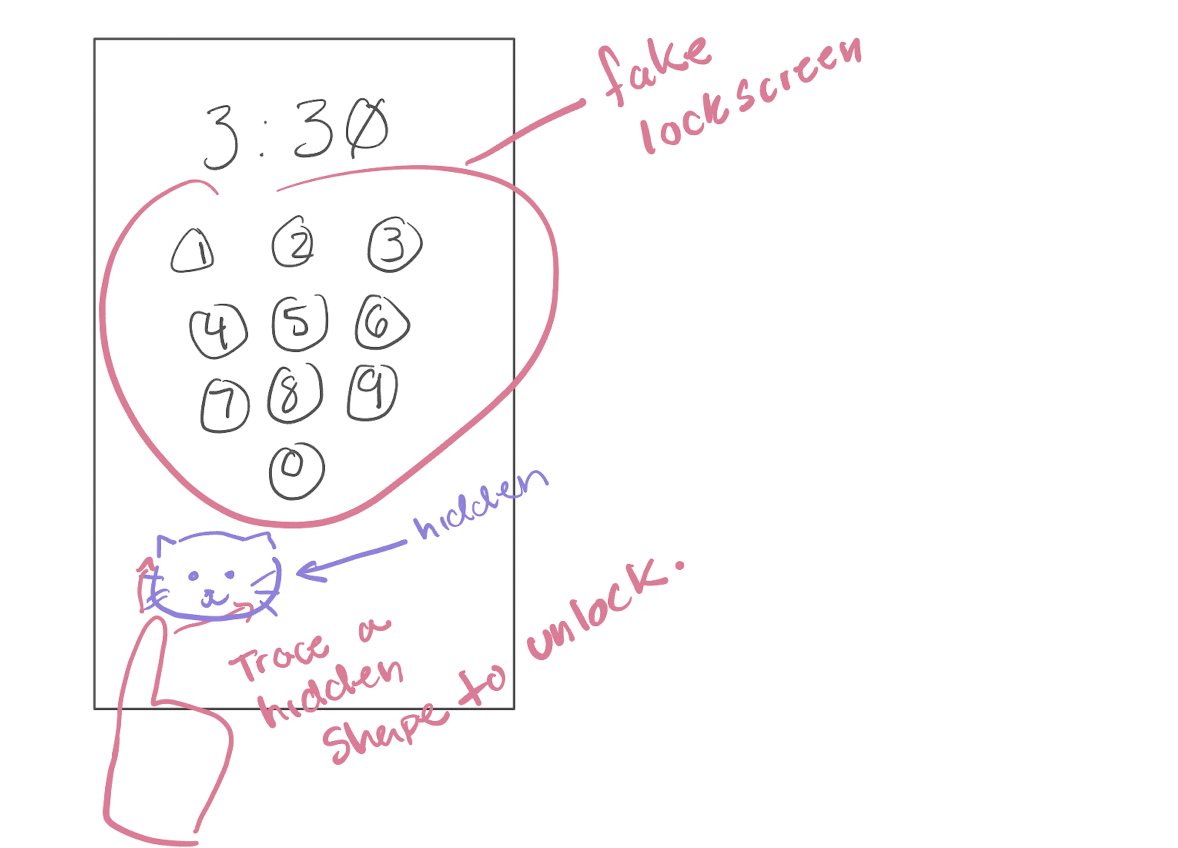 3:30
fake
lockscreen
1 2 3
4 5 6
7 8 9
0
hidden
Trace a
hidden
shape to unlock.